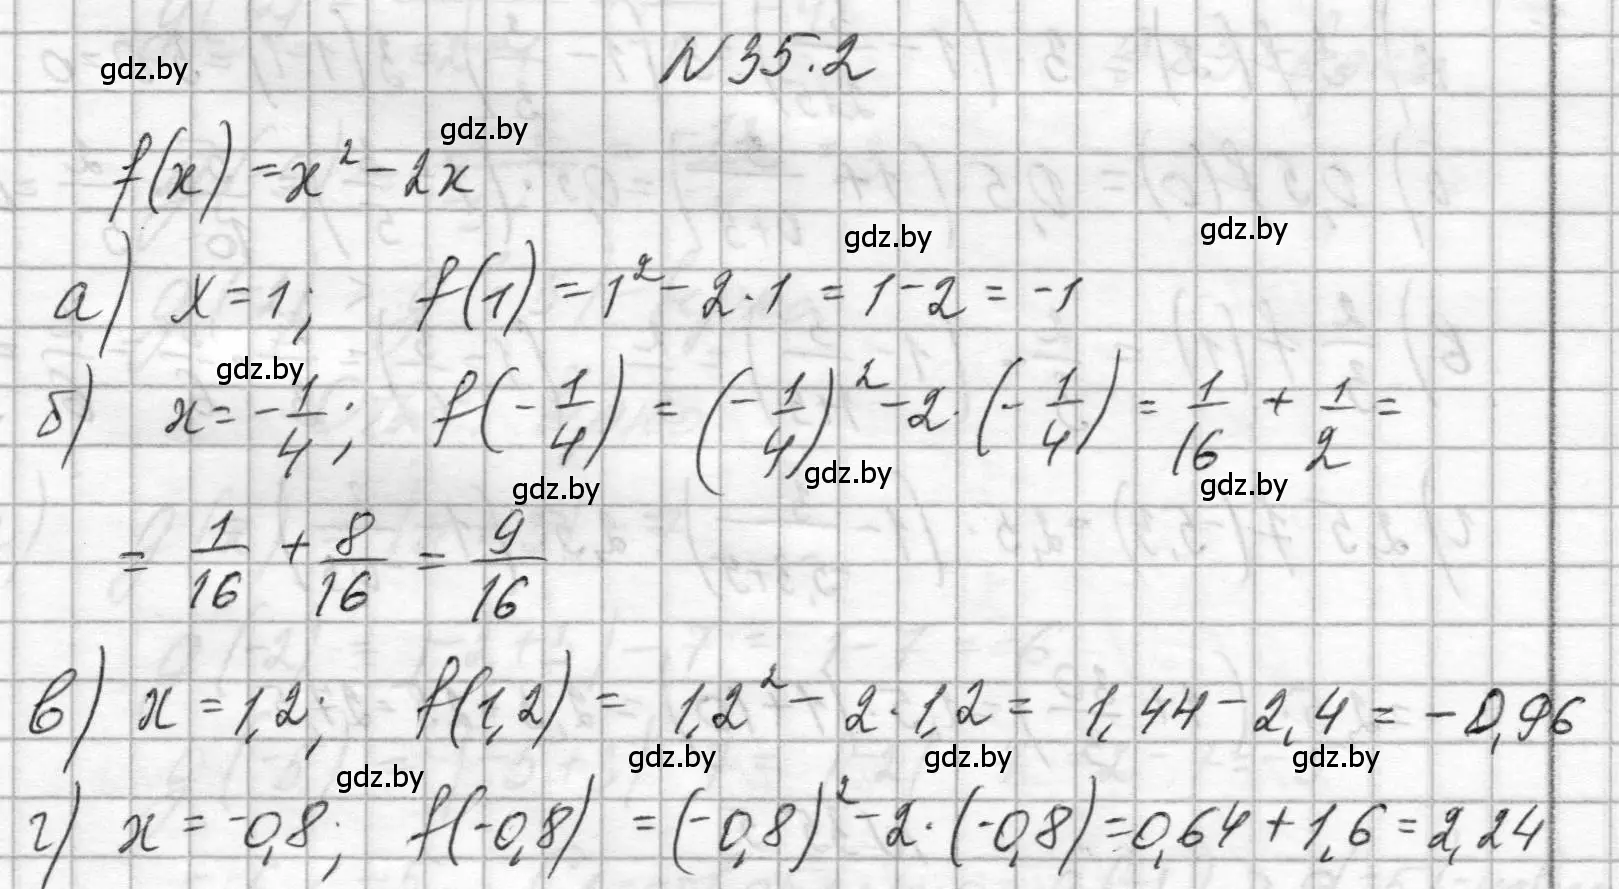 gdz.by
N 35.2
gdz.by
f(x) = x² - 2x
gdz.by gdz.by
а) x = 1; f(1) = 1² - 2·1 = 1 - 2 = -1
gdz.by
б) x = -1/4; f(-1/4) = (-1/4)² - 2·(-1/4) = 1/16 + 1/2 =
gdz.by gdz.by gdz.by
= 1/16 + 8/16 = 9/16
в) x = 1,2; f(1,2) = 1,2² - 2·1,2 = 1,44 - 2,4 = -0,96
gdz.by gdz.by gdz.by gdz.by
г) x = -0,8; f(-0,8) = (-0,8)² - 2·(-0,8) = 0,64 + 1,6 = 2,24